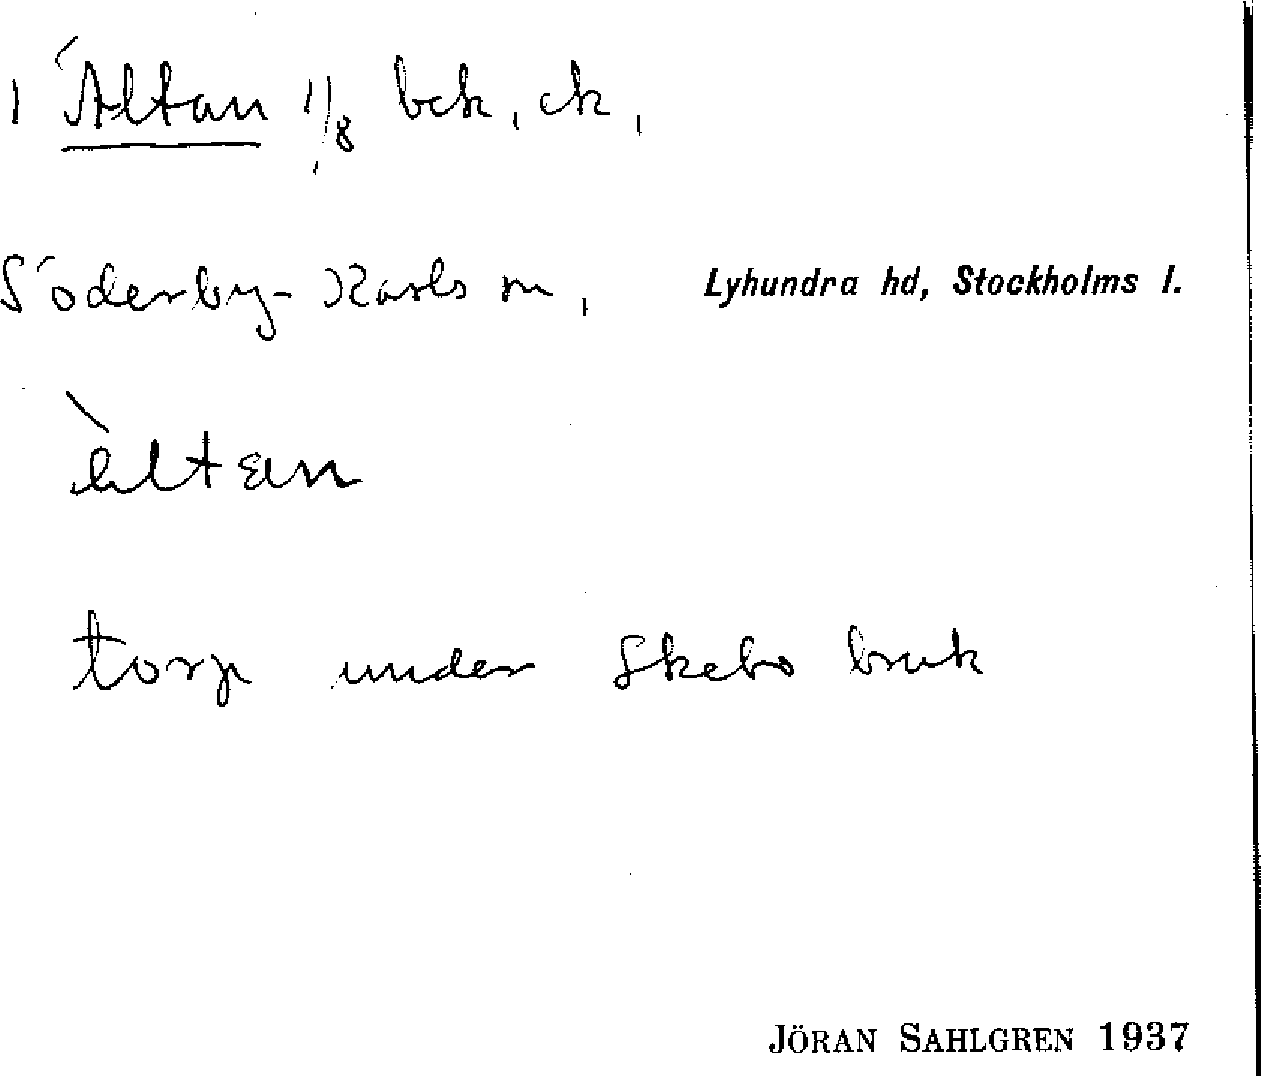 1 Ältan 1/8 bck, ck,
Söderby-Karls sn, Lyhundra hd, Stockholms l.
æ̀ltan
torp under Skebo bruk
JÖRAN SAHLGREN 1937